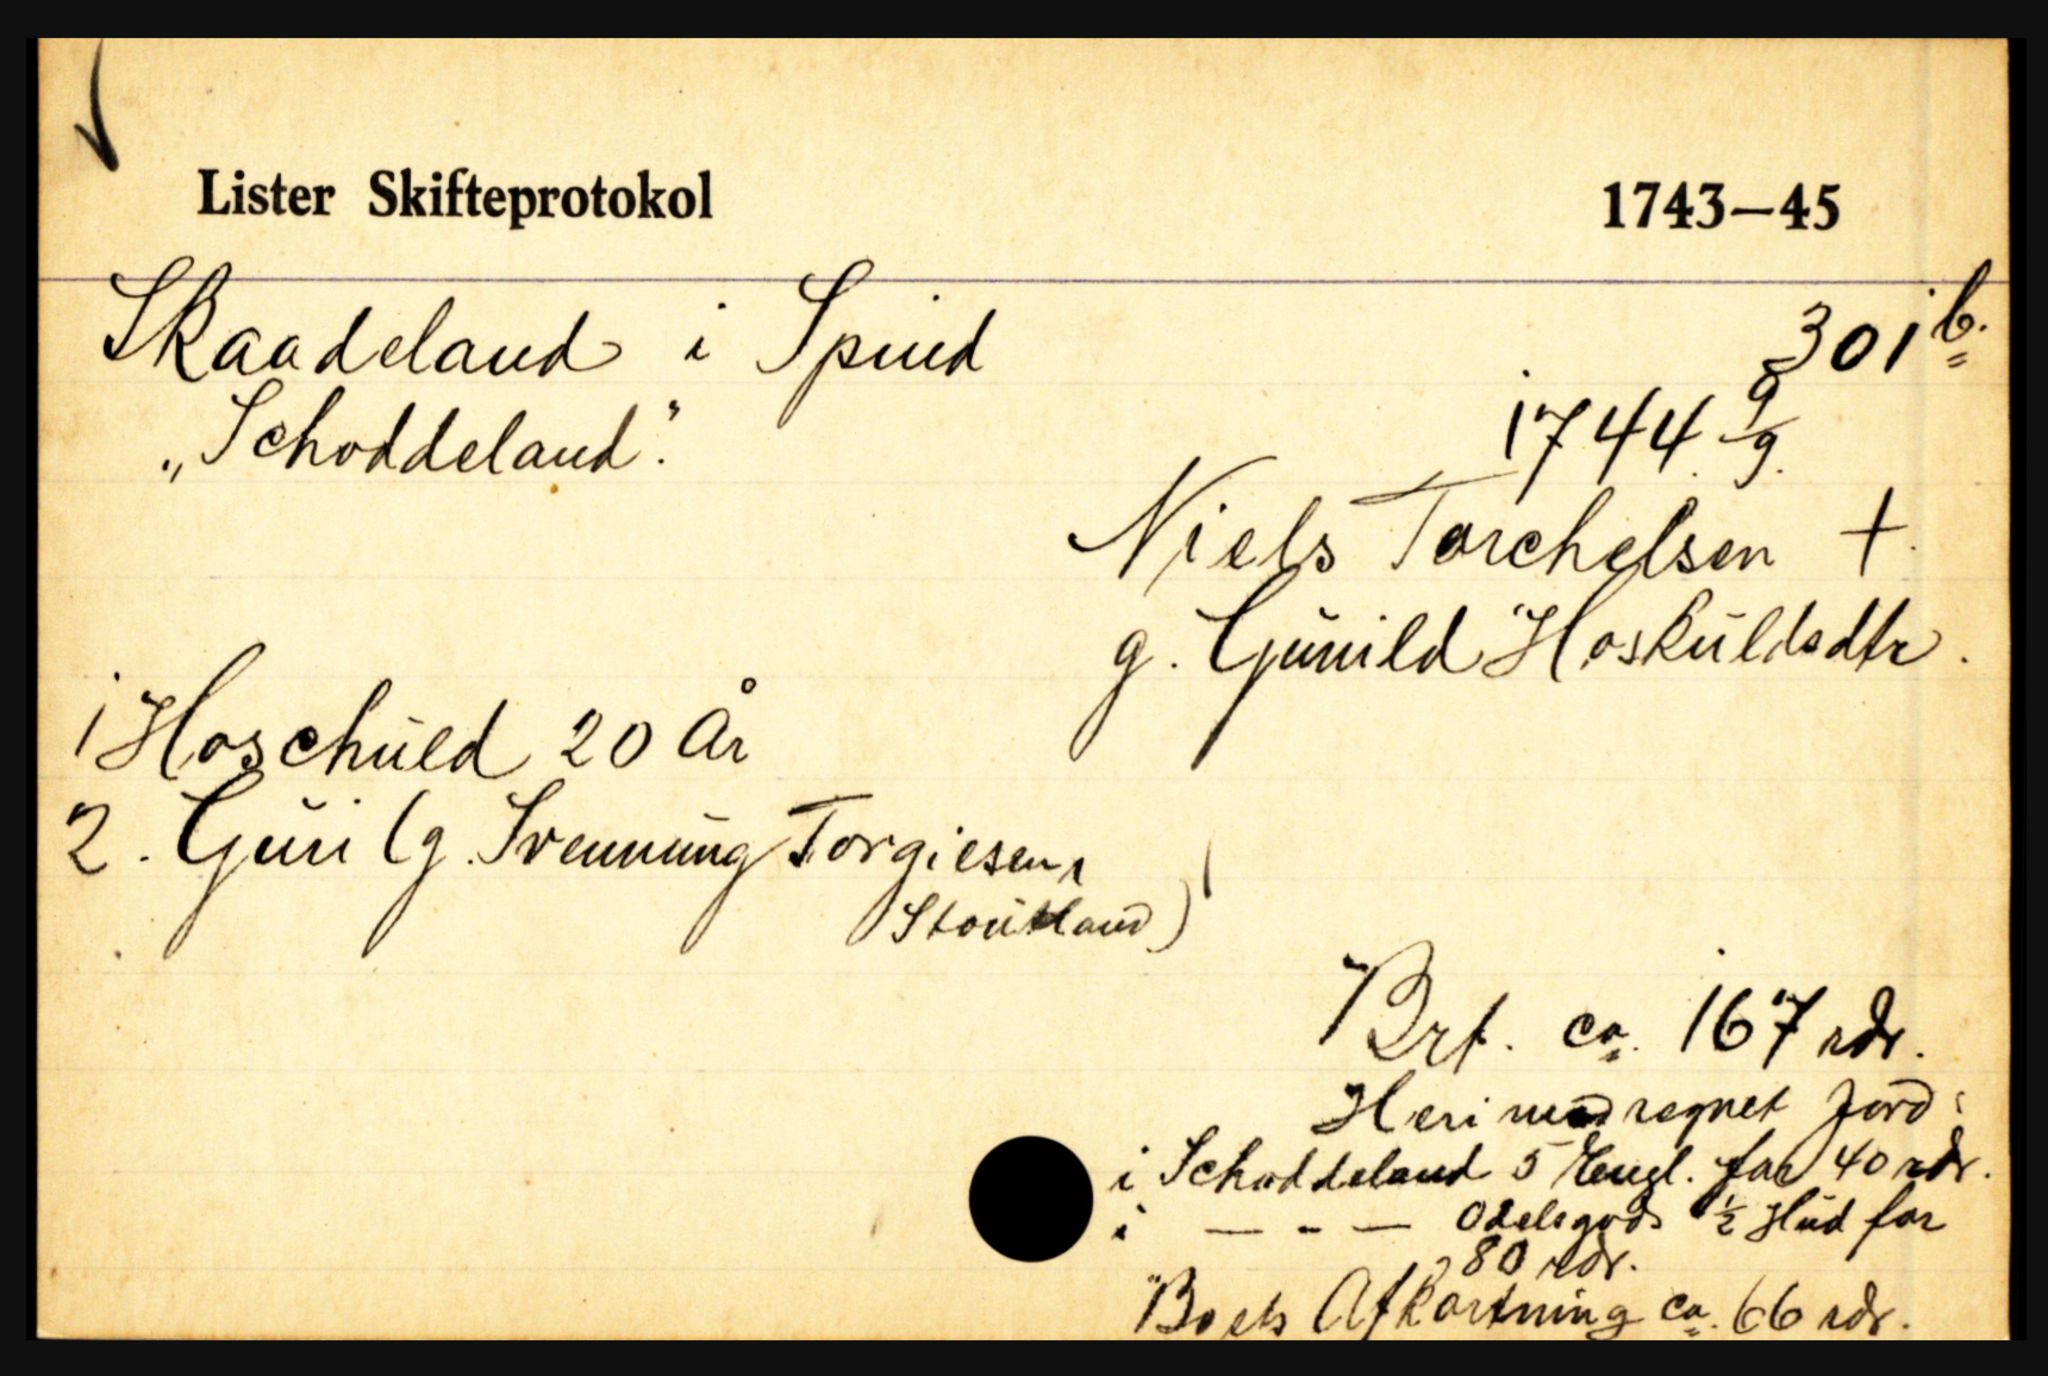 Lister Skifteprotokol 1743—45
Skaadeland i Spind 301 b.
"Schoddeland". 1744 9/9.
Niels Torchelsen †.
g. Gunild Hoskuldsdtr.
1 Hoschuld 20 År
2. Guri (g. Svennung Torgiesen,
Stoutland)
Brt. ca. 167 rdr.
Heri medregnet Jord:
i Schoddeland 5 Engl. for 40 rdr.
i — - — Odelsgods 1/2 Hud for
80 rdr.
Boets Afkortning ca. 66 rdr.